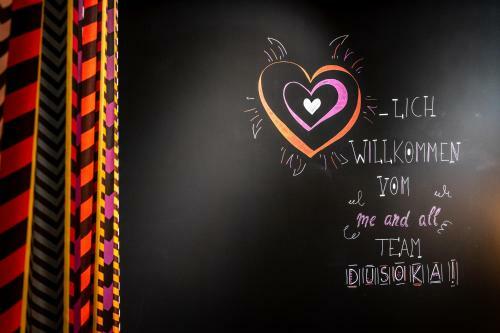 -LICH
WILLKOMMEN
VOM
me and all
TEAM
DUSOKA!